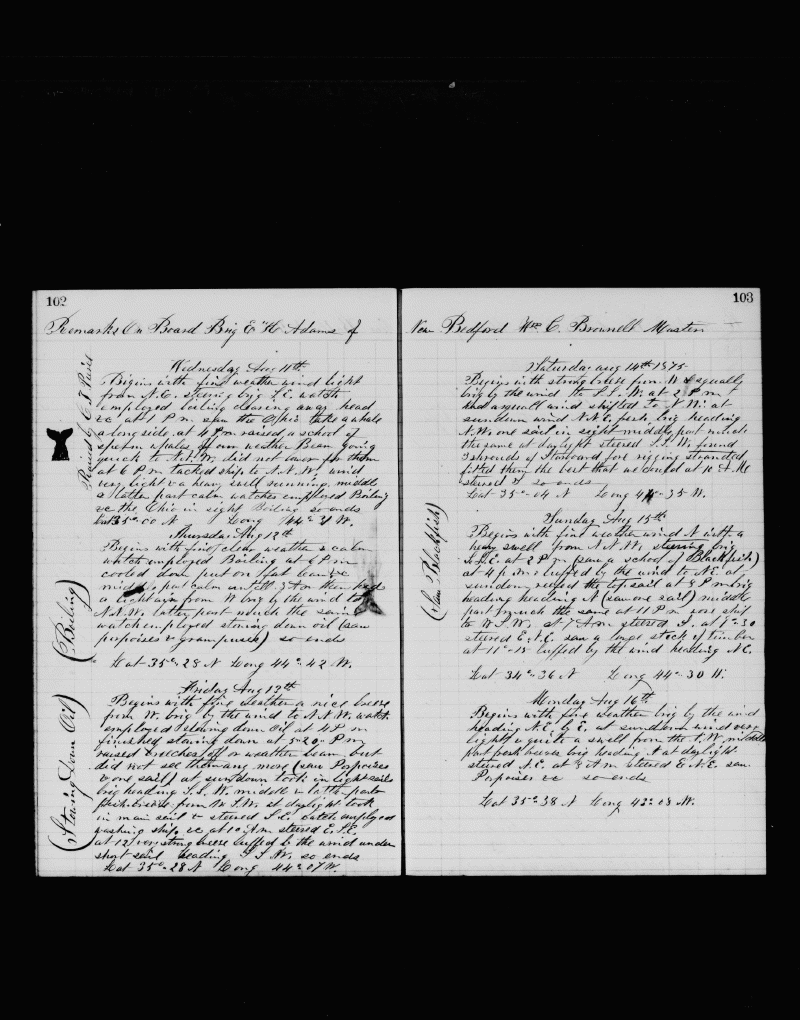 102
Remarks On Board Brig E H Adams of
Wednesday Aug 11th
Begins with fine weather wind light
from N.E. steering brig S.E. watch
employed boiling clearing away head
&c at 1 P.m. the Ohio take a whale
alongside at P.m. raised a school of
sperm whales of our weather Beam going
quick to N.N.W. did not lower for them
at 6 P.m tacked ship to N.N.W. wind
very light & a heavy swell running middle
& latter part calm watches employed Boiling
&c the Ohio in sight Boiling so ends
Lat 35°-00 N Long 44° 31 W.
Raised by
Thursday Aug 12th
Begins with fine clear weather & calm
watch employed Boiling at 6 P.m
cooled down put on fast
middle part calm untill 3 A.m then had
a light air from W brig by the wind to
N.N.W. latter part much the same
watch employed stowing down oil (saw
porpoises & grampuses) so ends
Lat 35°-28 N Long 44°-42 W.
(Boiling)
Friday Aug 13th
Begins with fine weather a nice breeze
from W. brig by the wind to N.N.W. watch
employed stowing down oil at 4 P.m
finished stowing down at 5-20 P.m
raised breaches off weather beam but
did not see them any more (saw Porpoises
& one sail) at sundown took in light sails
brig heading S.S.W. middle & latter part
fresh breeze from W.S.W. at daylight took
in main sail & steered S.E. watch employed
washing ship &c at 10 A.m steered E.S.E.
at 12 very strong breeze luffed to the wind under
short sail heading S W. so ends
Lat 35°-28 N Long 44°-07 W.
(Stowing Down Oil)
103
New Bedford Wm C. Brownell Master
Saturday Aug 14th 1875
Begins with strong breeze from W & squally
brig by the wind to S.S.W. at 2 P.m
had a squall wind shifted to N.W. at
sundown wind N.N.E. fresh brig heading
N.W. one sail in sight middle part much
the same at daylight steered S.S.W. found
3 shrouds of Starboard fore rigging stranded
fitted them the best that we could at 10 A.M.
steered so ends
Lat 35°-04 N Long 44°-35 W.
Sunday Aug 15th
Begins with fine weather wind N with a
heavy swell from N.N.W. steering brig
S.E. at 2 P.m (saw a school of Blackfish)
at 4 P.m luffed by the wind to N.E. at
sundown reefed the topsail at 8 P.m brig
heading heading N (saw one sail) middle
part much the same at 11 P.m wore ship
to W.S.W. at 7 A.m steered S. at 8-30
steered E.N.E. saw a large stick of timber
at 11-15 luffed by the wind heading N.E.
Lat 34°-36 N Long 44°-30 W.
(Saw Blackfish)
Monday Aug 16th
Begins with fine weather brig by the wind
heading N.E. by E. at sundown wind very
light & quite a swell from the N.W. middle
part fresh breeze brig heading N at daylight
steered N.E. at 8 A.m steered E.N.E. saw
Porpoises &c so ends
Lat 35°-38 N Long 43°-08 W.